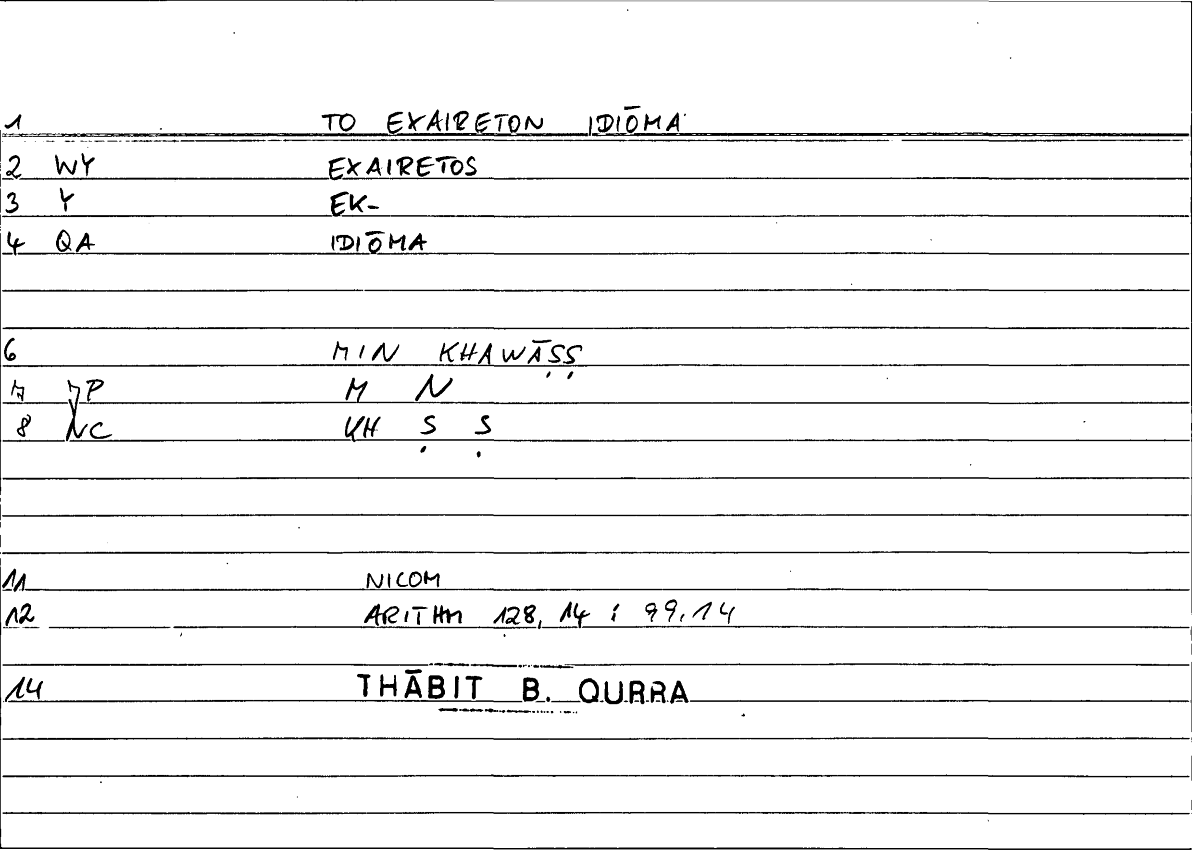 1 TO EXAIRETON IDIŌMA
2 WY EXAIRETOS
3 Y EK-
4 QA IDIŌMA
6 MIN KHAWĀṢṢ
7 JP M N
8 NC KH Ṣ Ṣ
11 NICOM
12 ARITHM 128, 14 ; 99,14
14 THĀBIT B. QURRA